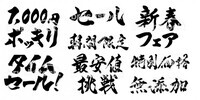 1,000円
ポッキリ
セール
期間限定
新春
フェア
タイム
セール!
最安値
挑戦
特別価格
無添加